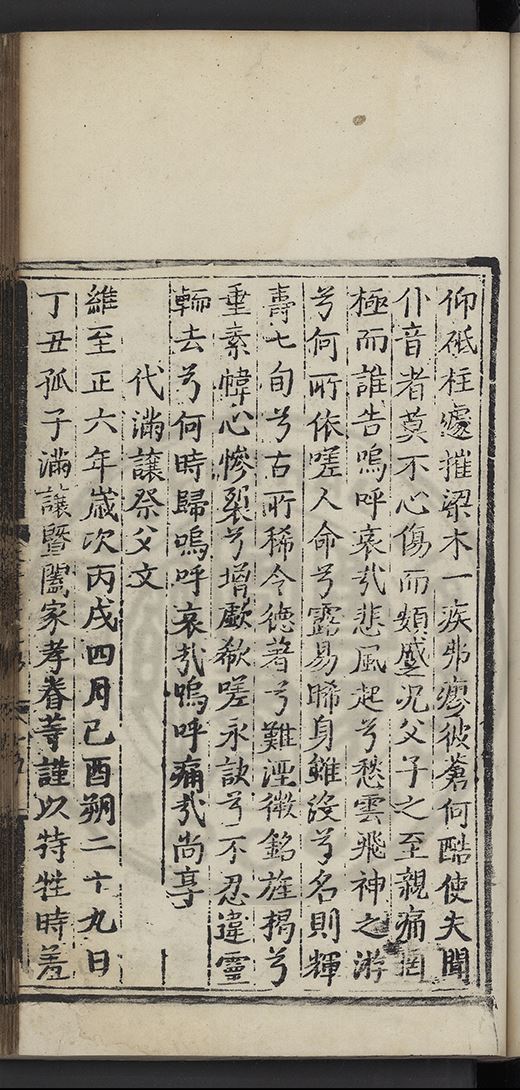 仰砥柱遽摧梁木一疾弗瘳彼蒼何酷使夫聞
仆音者莫不心傷而頞蹙况父子之至親痛罔
極而誰告嗚呼哀㢤悲風起兮愁雲飛神之游
兮何所依嗟人命兮露易晞身雖沒兮名則輝
壽七旬兮古所稀令德著兮難湮微銘旌揭兮
垂素幃心慘裂兮增歔欷嗟永訣兮不忍違靈
輀去兮何時歸嗚呼哀㢤嗚呼痛㢤尚享
代滿讓祭父文
維至正六年歲次丙戌四月己酉朔二十九日
丁丑孤子滿讓曁闔家孝眷等謹以特牲時羞